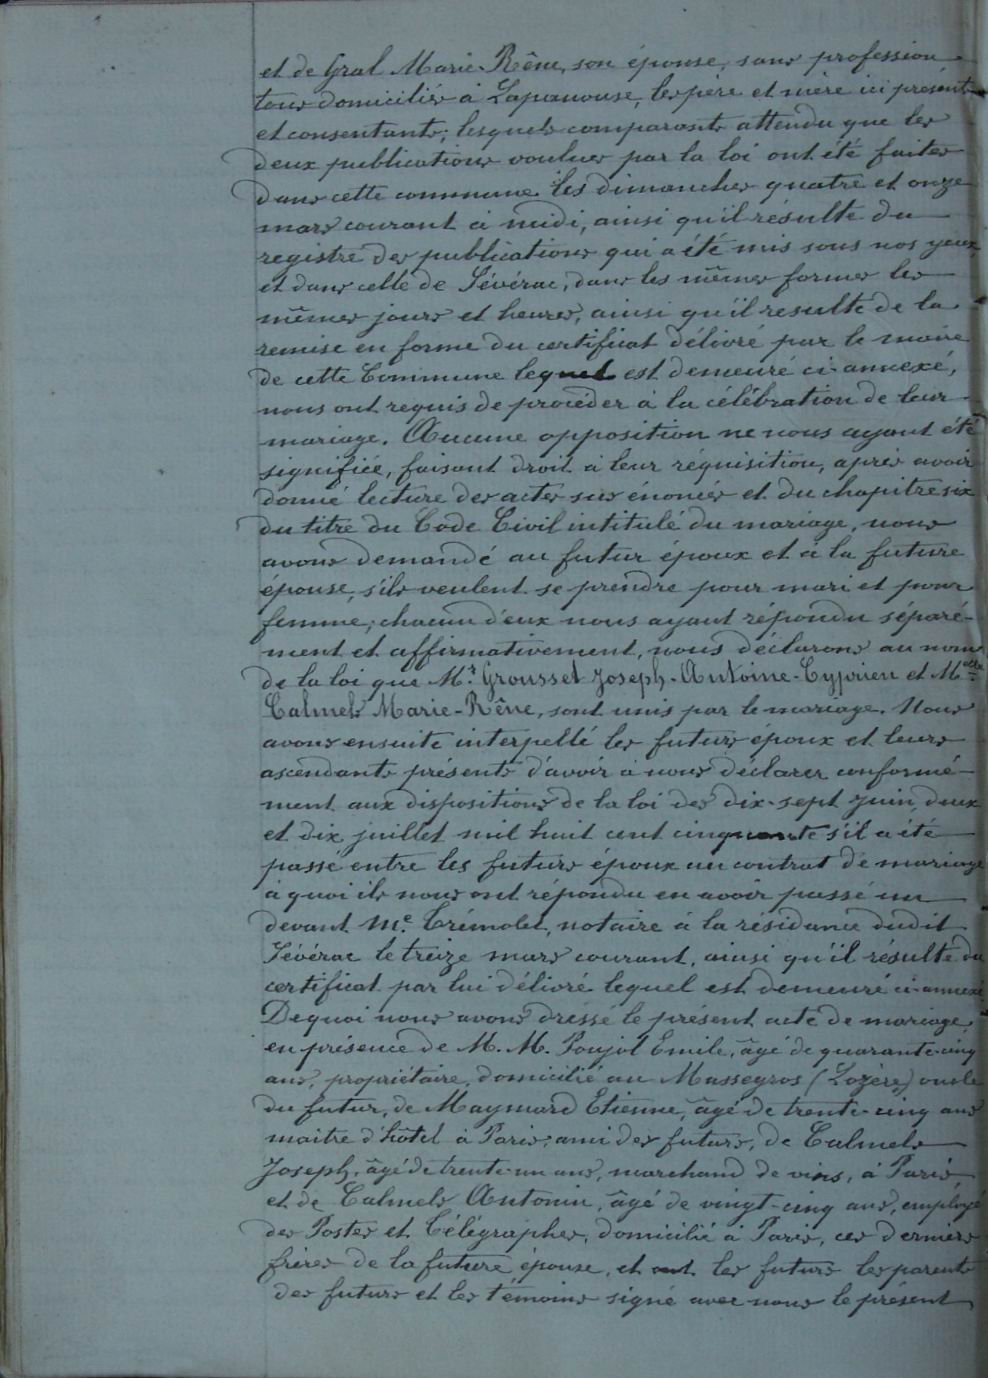 et de Gral Marie-Rêne, son épouse, sans profession
tous domiciliés à Lapanouse, les père et mère ici présents
et consentants; lesquels comparants attendu que les
deux publications voulues par la loi ont été faites
dans cette commune les dimanches quatre et onze
mars courant à midi, ainsi qu'il résulte du
registre des publications qui a été mis sous nos yeux
et dans celle de Sévérac, dans les mêmes formes les
mêmes jours et heures, ainsi qu'il resulte de la
remise en forme du certificat délivré par le maire
de cette Commune lequel est demeuré ci-annexé,
nous ont requis de procéder à la célébration de leur
mariage. Aucune opposition ne nous ayant été
signifiée, faisant droit à leur réquisition, après avoir
donné lecture des actes sus énoncés et du chapitre six
du titre du Code Civil intitulé du mariage, nous
avons demandé au futur époux et à la future
épouse, s'ils veulent se prendre pour mari et pour
femme; chacun d'eux nous ayant répondu séparé-
ment et affirmativement, nous déclarons au nom
de la loi que Mr. Grousset Joseph-Antoine-Cyprien et Melle
Calmels Marie-Rêne, sont unis par le mariage. Nous
avons ensuite interpellé les futurs époux et leurs
ascendants présents d'avoir à nous déclarer conformé-
ment aux dispositions de la loi des dix-sept juin, deux
et dix juillet mil huit cent cinquante s'il a été
passé entre les futurs époux un contrat de mariage
a quoi ils nous ont répondu en avoir passé un
devant Me. Trémolet, notaire à la résidance dudit
Sévérac le treize mars courant, ainsi qu'il résulte du
certificat par lui délivré lequel est demeuré ci-annexé.
De quoi nous avons dressé le présent acte de mariage,
en présence de M. M. Poujol Emile, âgé de quarante-cinq
ans, propriétaire, domicilié au Massegros (Lozère) oncle
du futur, de Maymard Etienne, âgé de trente-cinq ans
maitre d'hôtel à Paris, ami des futurs, de Calmels
Joseph, âgé de trente-un ans, marchand de vins, à Paris
et de Calmels Antonin, âgé de vingt-cinq ans, employé
des Postes et Télégraphes, domicilié à Paris, ces derniers
frères de la future épouse, et ont les futurs les parents
des futurs et les témoins signé avec nous le présent